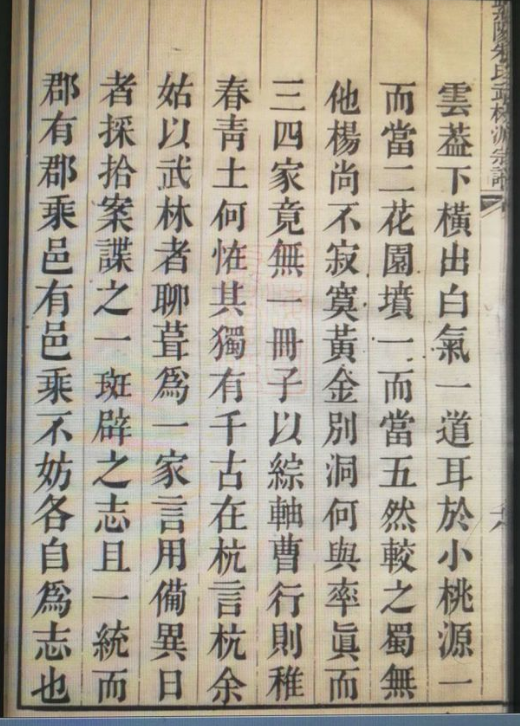 雲葢下橫出白氣一道耳於小桃源一
而當二花園墳一而當五然較之蜀無
他楊尚不寂寞黃金別洞何與率眞而
三四家竟無一冊子以綜軸曹行則稚
春靑土何恠其獨有千古在杭言杭余
姑以武林者聊葺爲一家言用備異日
者採拾案諜之一斑辟之志且一統而
郡有郡乘邑有邑乘不妨各自爲志也